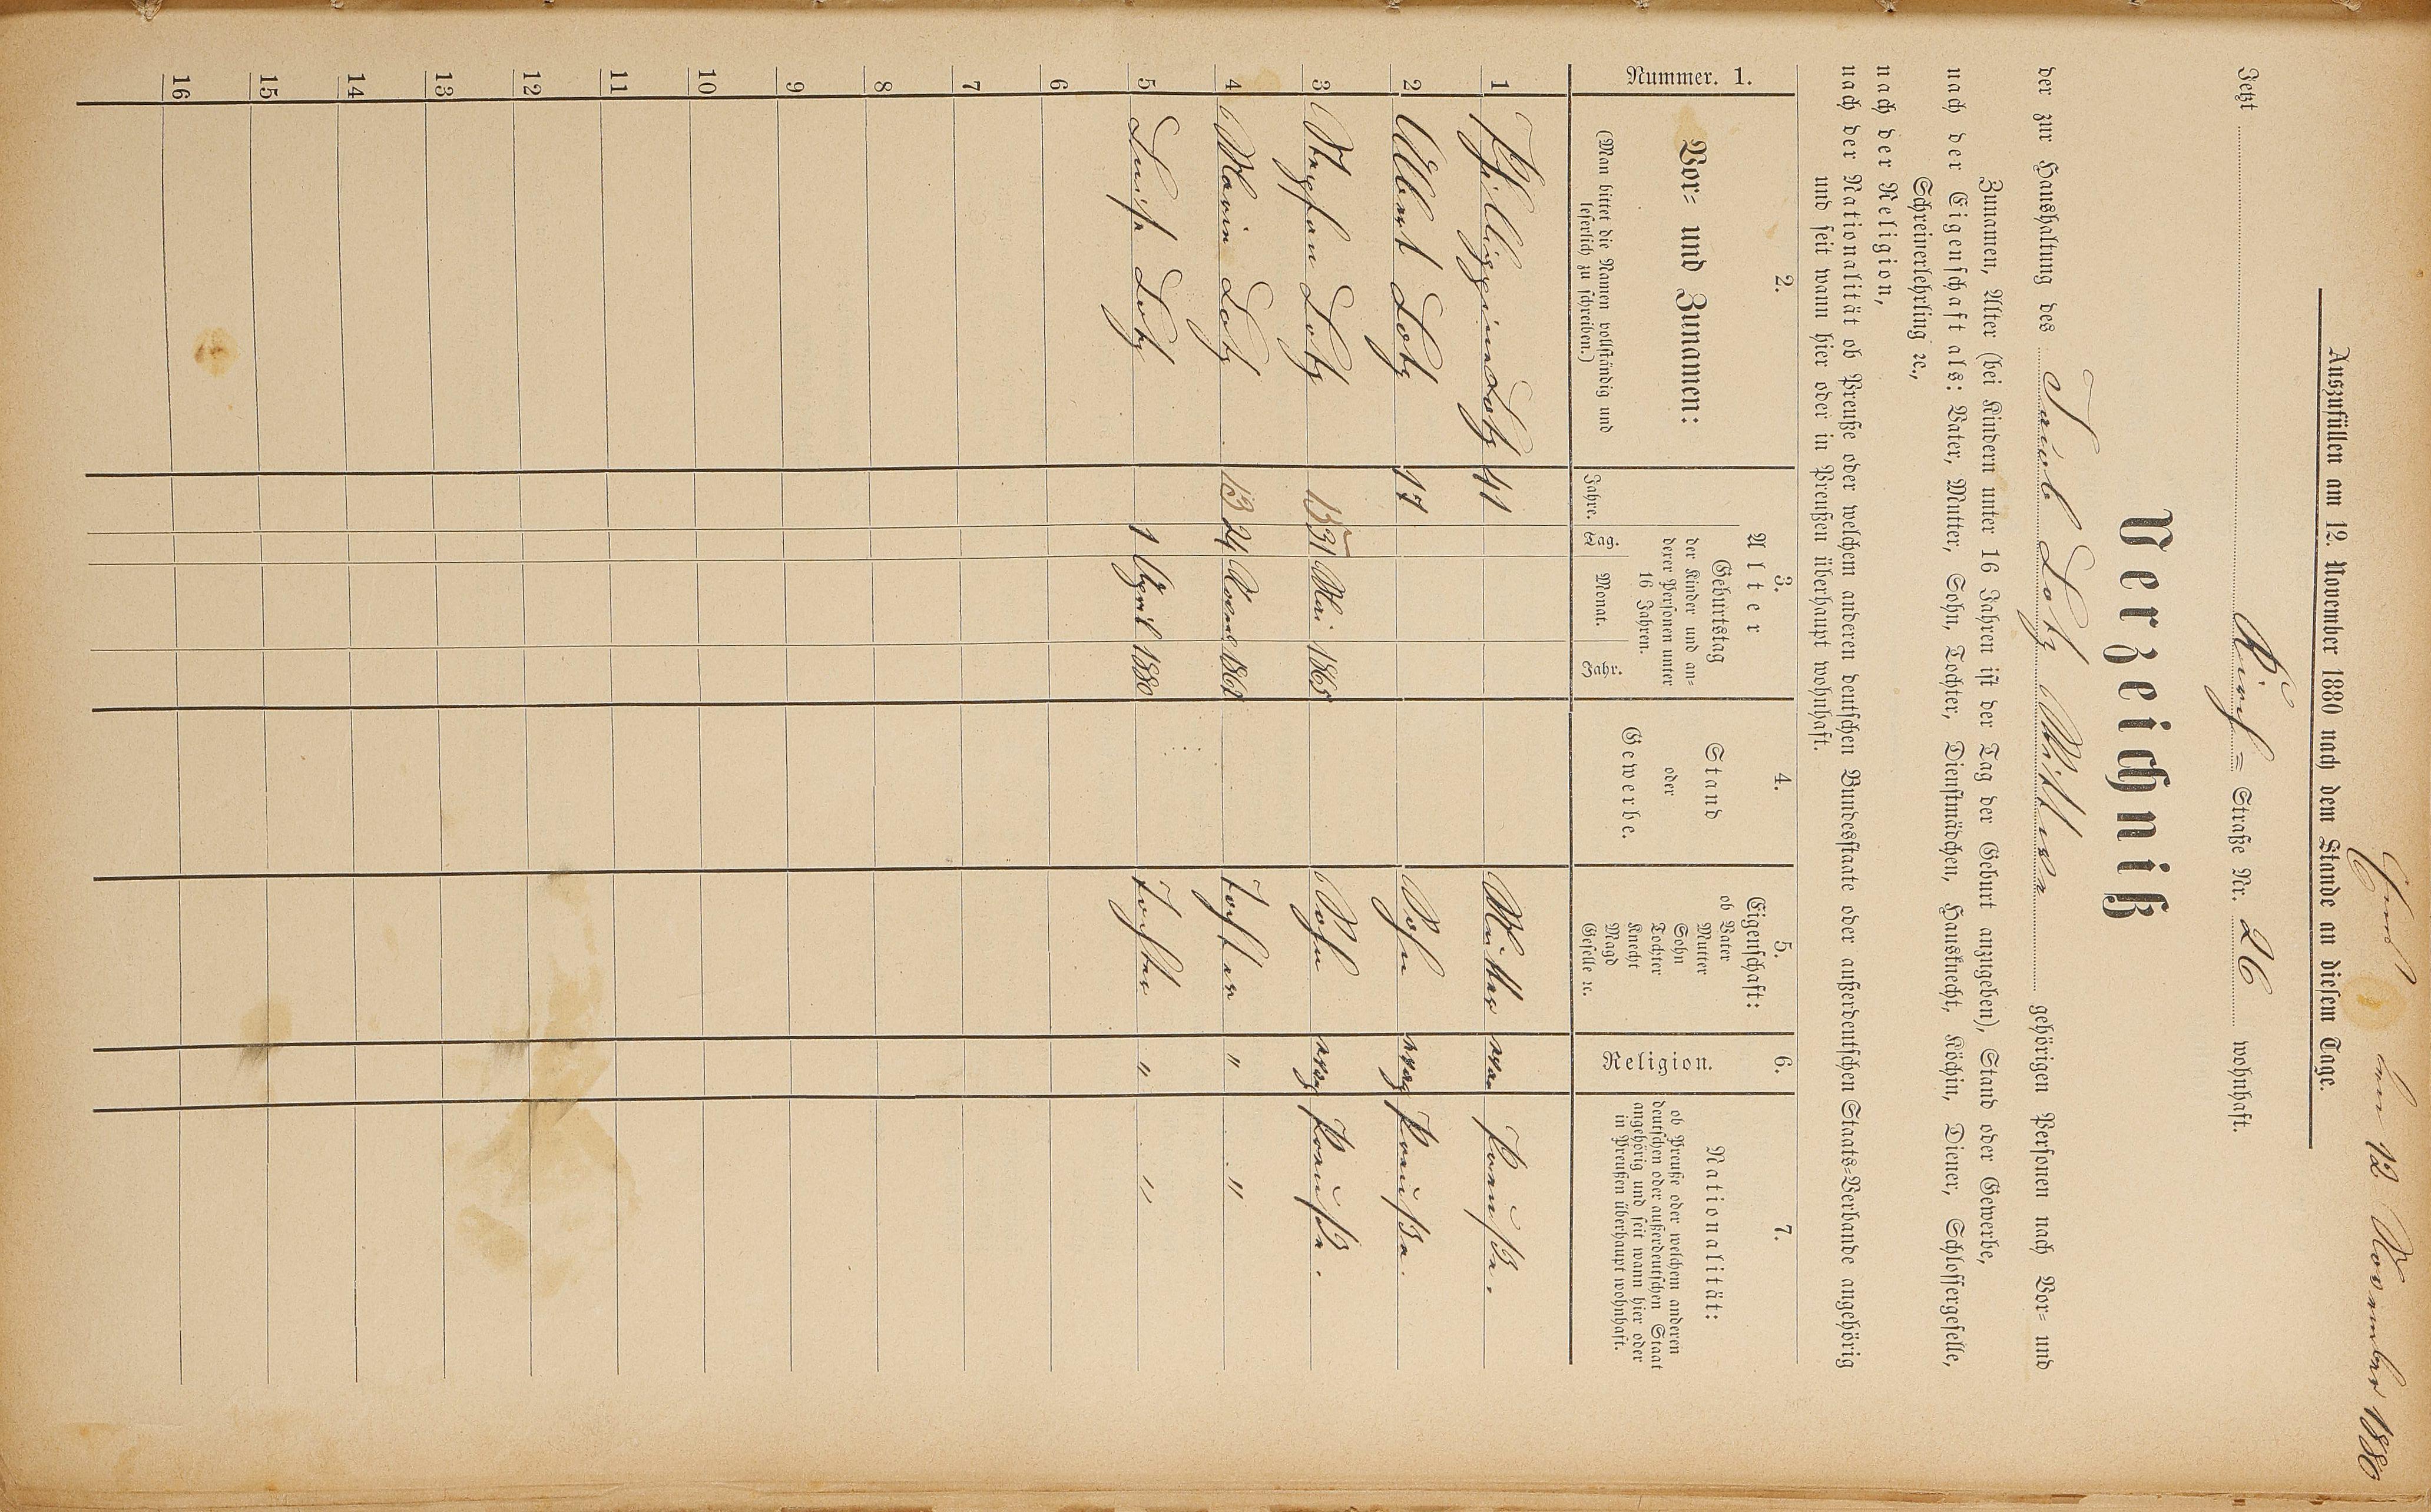 Ems den 12 November 1880
Auszufüllen am 12. November 1880 nach dem Stande an diesem Tage.
Jetzt Kirch = Straße Nr. 26 wohnhaft.
Verzeichniß
der zur Haushaltung des Lotz Wittwe gehörigen Personen nach Vor- und
Zunamen, Alter (bei Kindern unter 16 Jahren ist der Tag der Geburt anzugeben), Stand oder Gewerbe,
nach der Eigenschaft als: Vater, Mutter, Sohn, Tochter, Dienstmädchen, Hausknecht, Köchin, Diener, Schlossergeselle,
Schreinerlehrling ꝛc.,
nach der Religion,
nach der Nationalität ob Preuße oder welchem anderen deutschen Bundesstaate oder außerdeutschen Staats-Verbande angehörig
und seit wann hier oder in Preußen überhaupt wohnhaft.
Nummer. 1.
2.
Vor- und Zunamen:
(Man bittet die Namen vollständig und
leserlich zu schreiben.)
3.
Alter
Jahre.
Geburtstag
der Kinder und an-
derer Personen unter
16 Jahren.
Tag. Monat. Jahr.
4.
Stand
oder
Gewerbe.
5.
Eigenschaft:
ob Vater
Mutter
Sohn
Tochter
Knecht
Magd
Geselle ꝛc.
6.
Religion.
7.
Nationalität:
ob Preuße oder welchem anderen
deutschen oder außerdeutschen Staat
angehörig und seit wann hier oder
in Preußen überhaupt wohnhaft.
1 Philippine Lotz 41 Mutter eva Preuße.
2 Albert Lotz 17 Sohn evag Preuße.
3 Stephan Lotz 15 31 Mai 1865 Sohn evag Preuße.
4 Marie Lotz 13 24 Novem 1867 Tochter " "
5 Luise Lotz 1 April 1880 Tochter " "
6
7
8
9
10
11
12
13
14
15
16